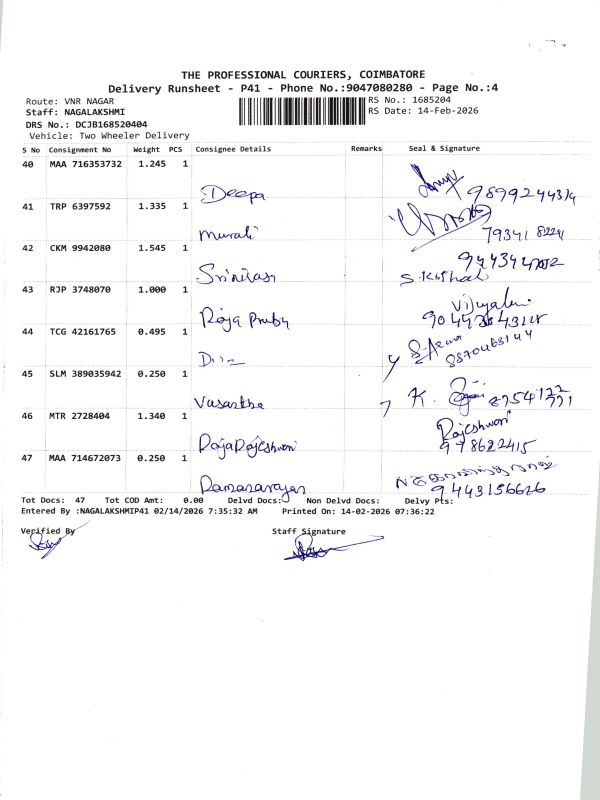 THE PROFESSIONAL COURIERS, COIMBATORE
Delivery Runsheet - P41 - Phone No.:9047080280 - Page No.:4
Route: VNR NAGAR
RS No.: 1685204
Staff: NAGALAKSHMI
RS Date: 14-Feb-2026
DRS No.: DCJB168520404
Vehicle: Two Wheeler Delivery
S No Consignment No Weight PCS Consignee Details Remarks Seal & Signature
40 MAA 716353732 1.245 1
Deepa
41 TRP 6397592 1.335 1
Murali
42 CKM 9942080 1.545 1
Srinivasa
43 RJP 3748070 1.000 1
Roja Prabu
44 TCG 42161765 0.495 1
8870463144
45 SLM 389035942 0.250 1
Vasantha
K.
46 MTR 2728404 1.340 1
Rajeshwari
RajaRajeshwari
978622415
47 MAA 714672073 0.250 1
9443156626
Tot Docs: 47 Tot COD Amt: 0.00 Delvd Docs: Non Delvd Docs: Delvy Pts:
Entered By :NAGALAKSHMIP41 02/14/2026 7:35:32 AM Printed On: 14-02-2026 07:36:22
Verified By Staff Signature